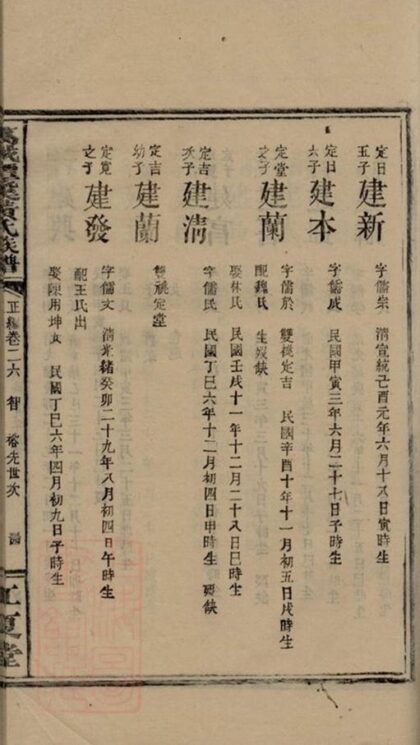 定日五子 建新 字儒崇 清宣統己酉元年六月十八日寅時生
定日六子 建本 字儒成 民國甲寅三年六月二十七日子時生
定堂之子 建蘭 字儒於 雙祧定吉 民國辛酉十年十一月初五日戌時生
配魏氏 生歿缺
娶林氏 民國壬戌十一年十二月二十八日巳時生
定吉長子 建清 字儒民 民國丁巳六年十二月初四日申時生 碑缺
定吉幼子 建蘭 雙祧定堂
定寬之子 建發 字儒文 清光緒癸卯二十九年八月初四日午時生
配王氏出
娶陳用坤女 民國丁巳六年四月初九日子時生
黃氏族譜 正編卷二六 智 先世次
江夏堂